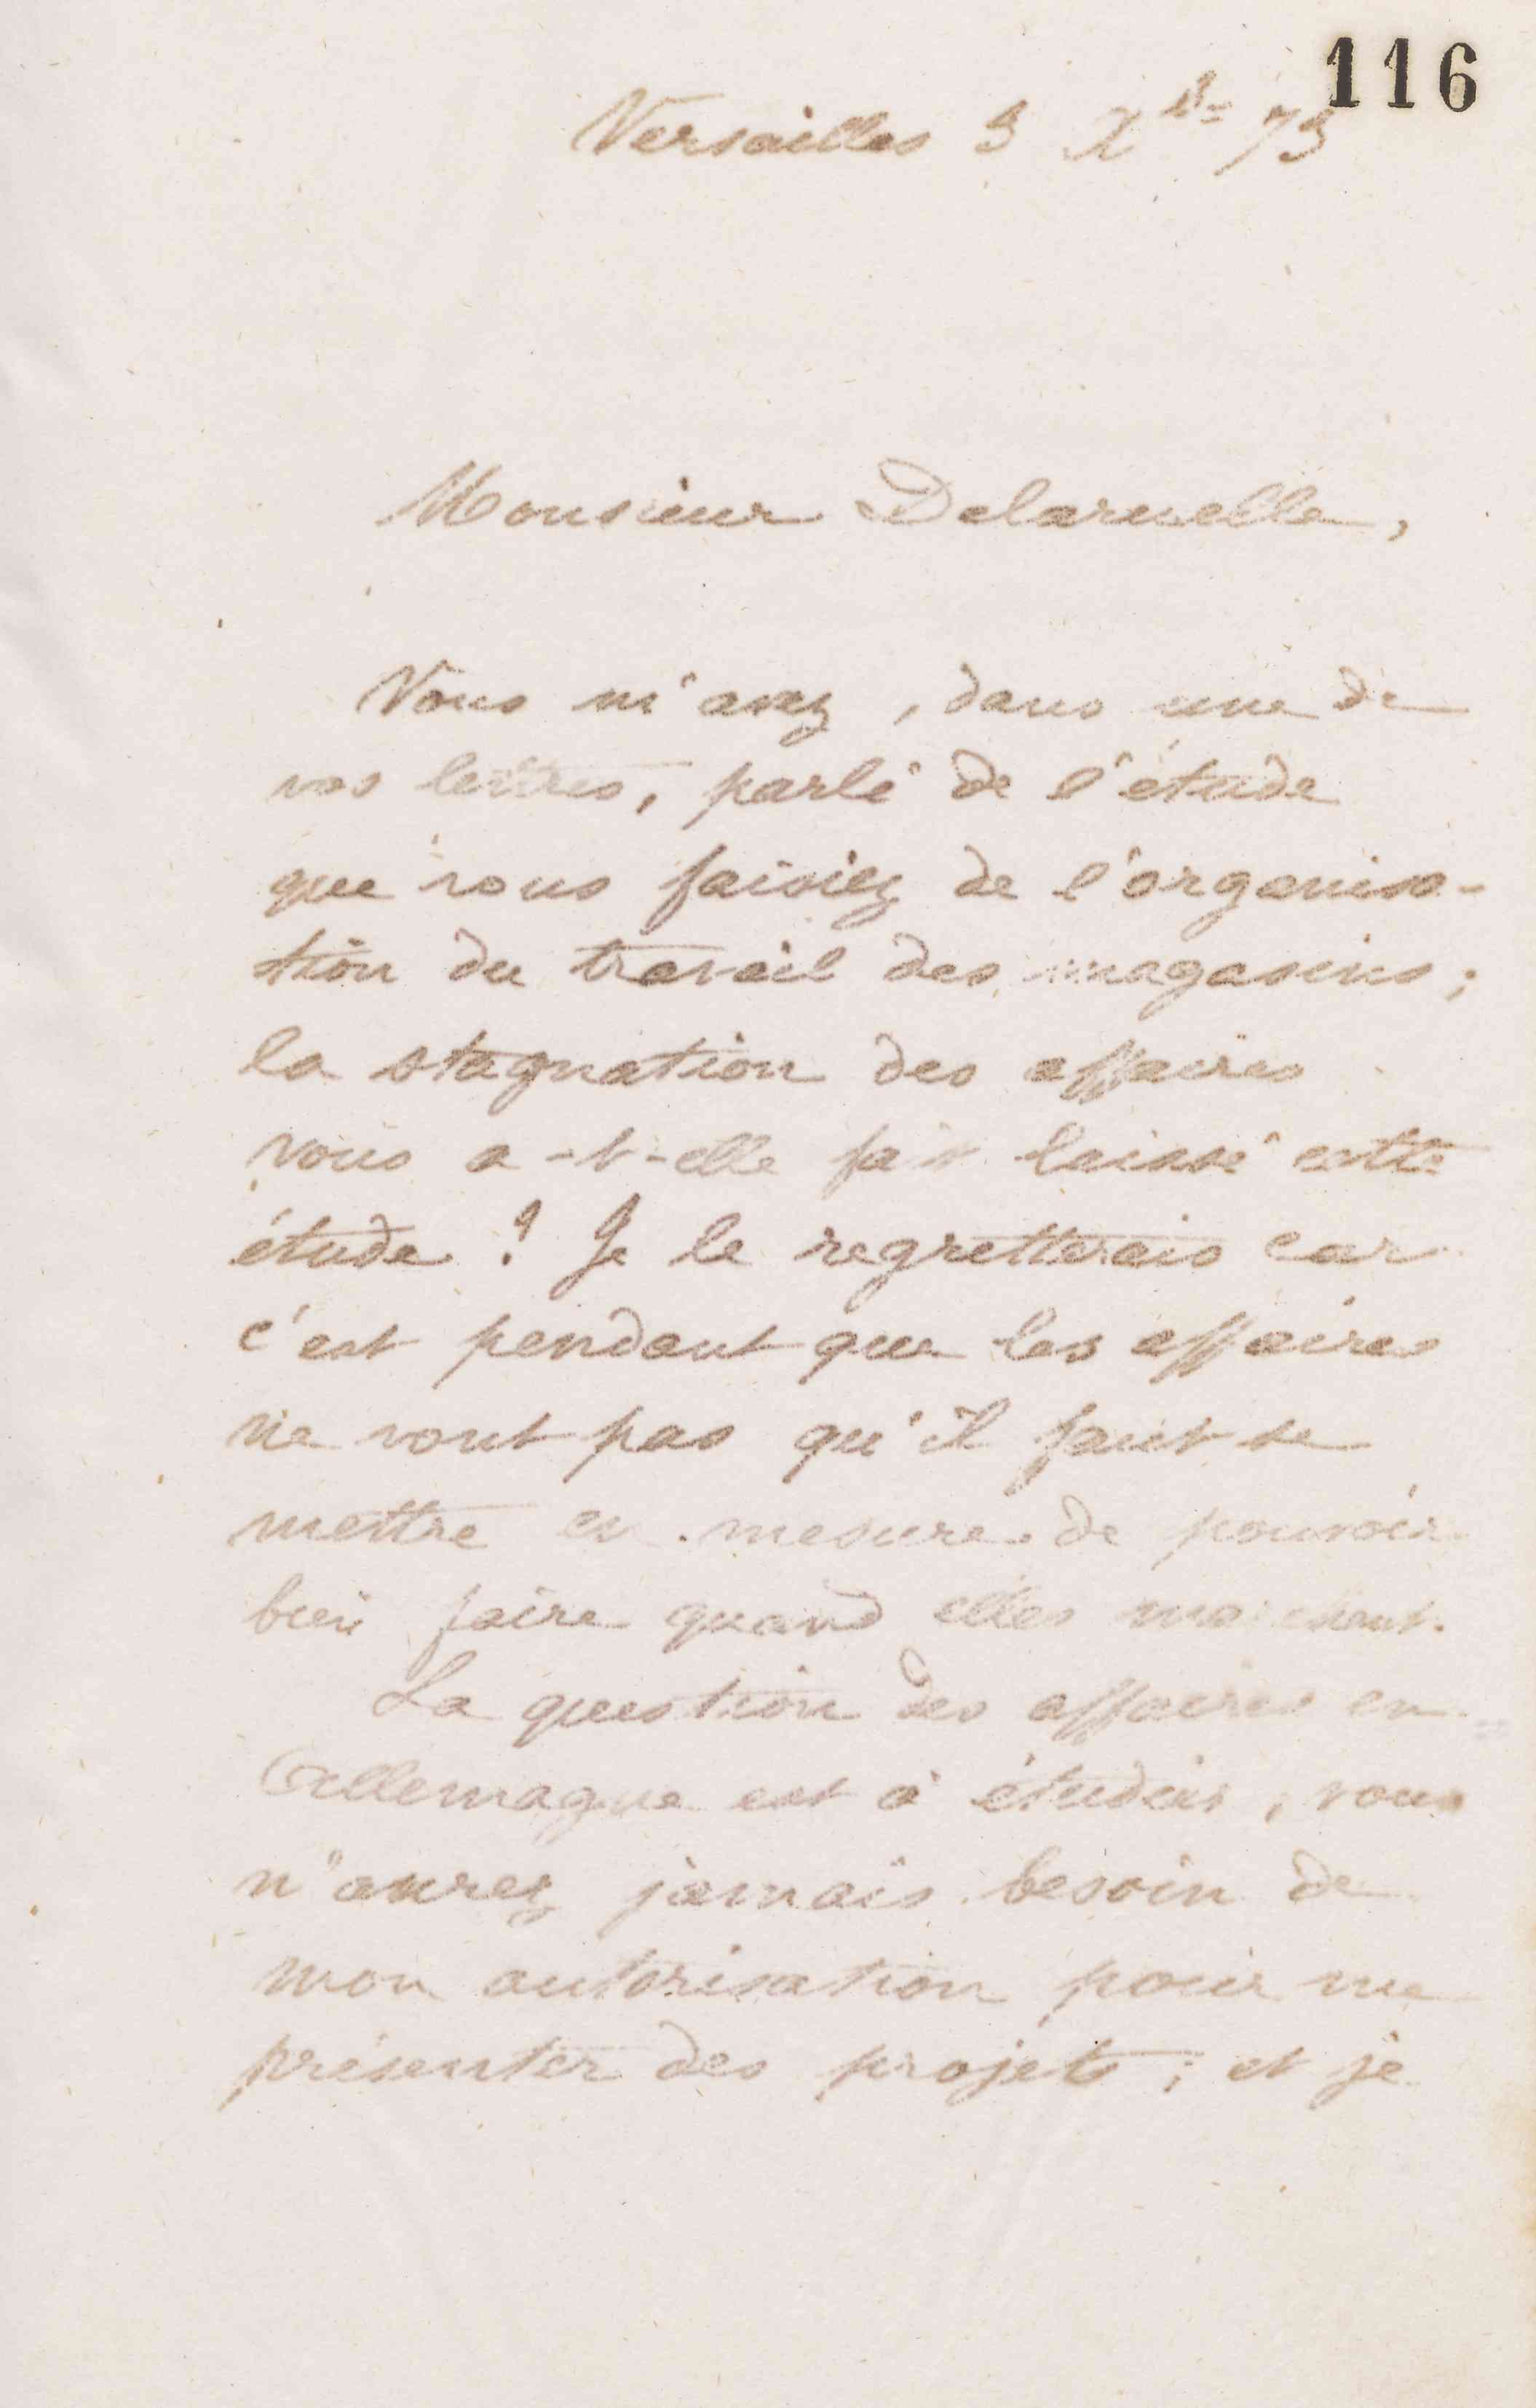 116
Versailles 3 Xbre 73
Monsieur Delaruelle,
Vous m'avez, dans une de
vos lettres, parlé de l'étude
que vous faisiez de l'organisa-
tion du travail des magasins ;
la stagnation des affaires
vous a-t-elle fait laissé cette
étude ? Je le regretterais car
c'est pendant que les affaires
ne vont pas qu'il faut se
mettre en mesure de pouvoir
bien faire quand elles marchent.
La question des affaires en
Allemagne est à étudier, vous
n'aurez jamais besoin de
mon autorisation pour me
présenter des projets ; et je